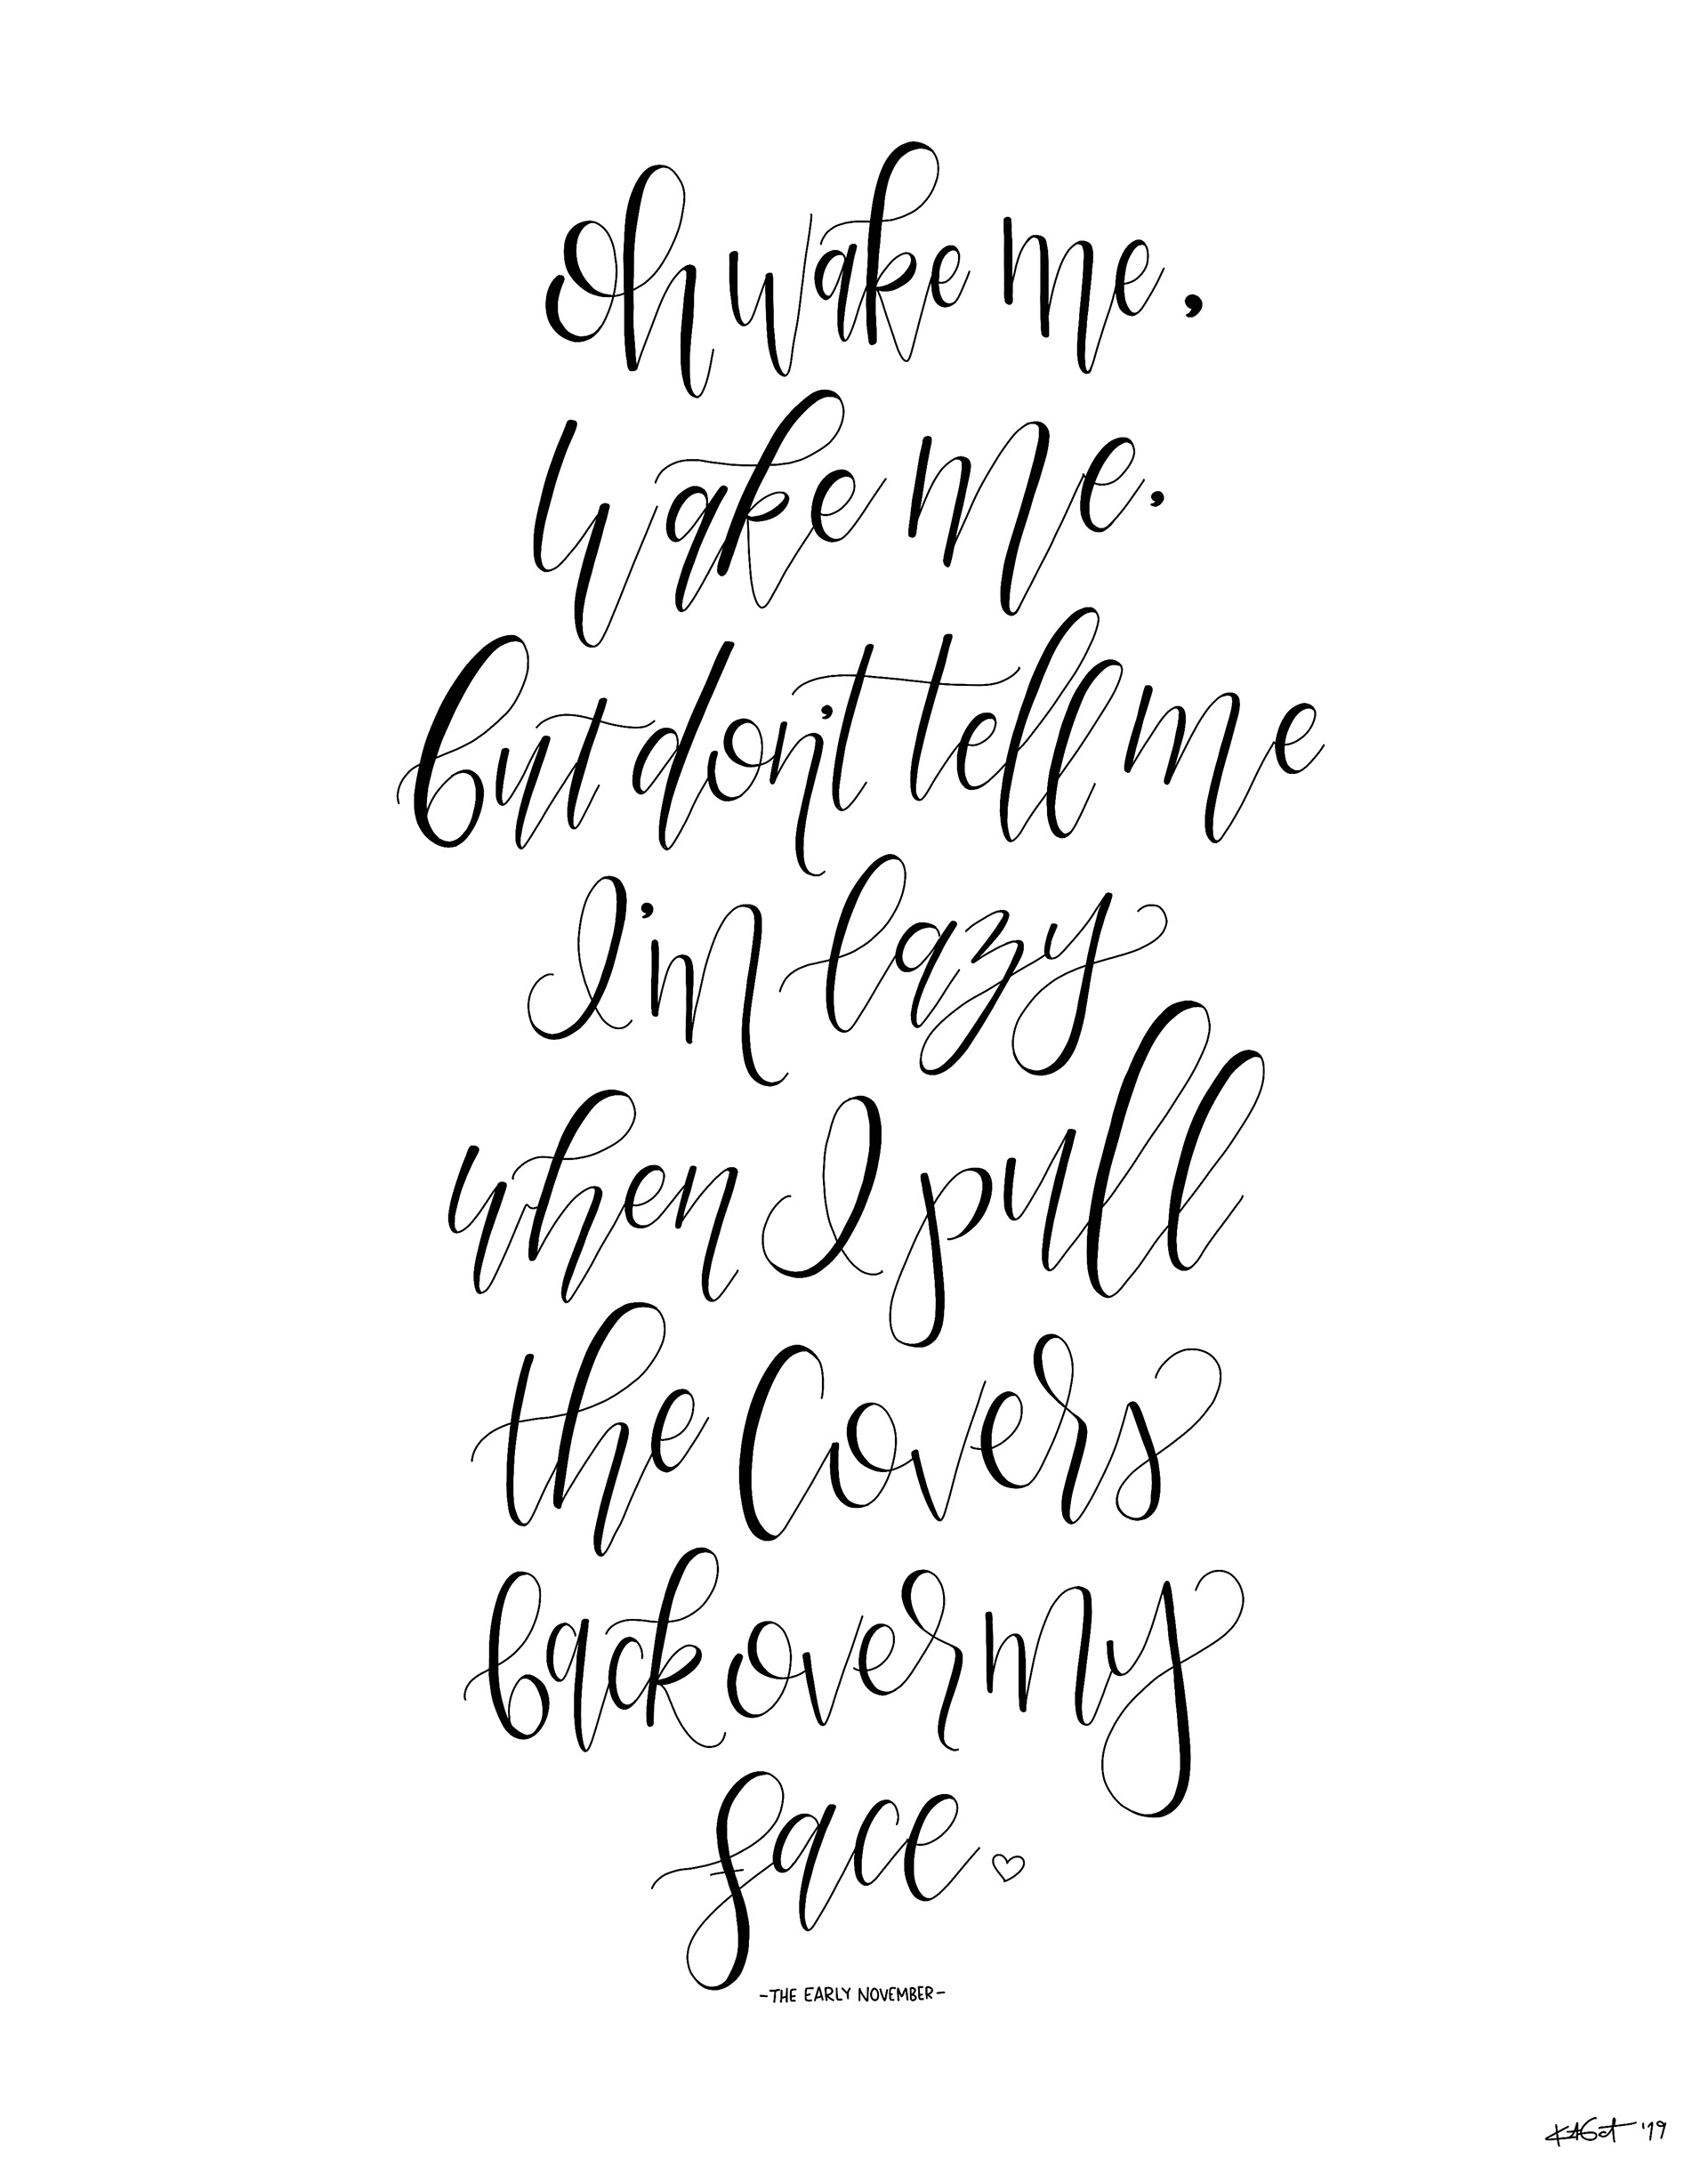 oh wake me,
wake me,
but don't tell me
I'm lazy
when I pull
the covers
back over my
face.
-THE EARLY NOVEMBER-
'19